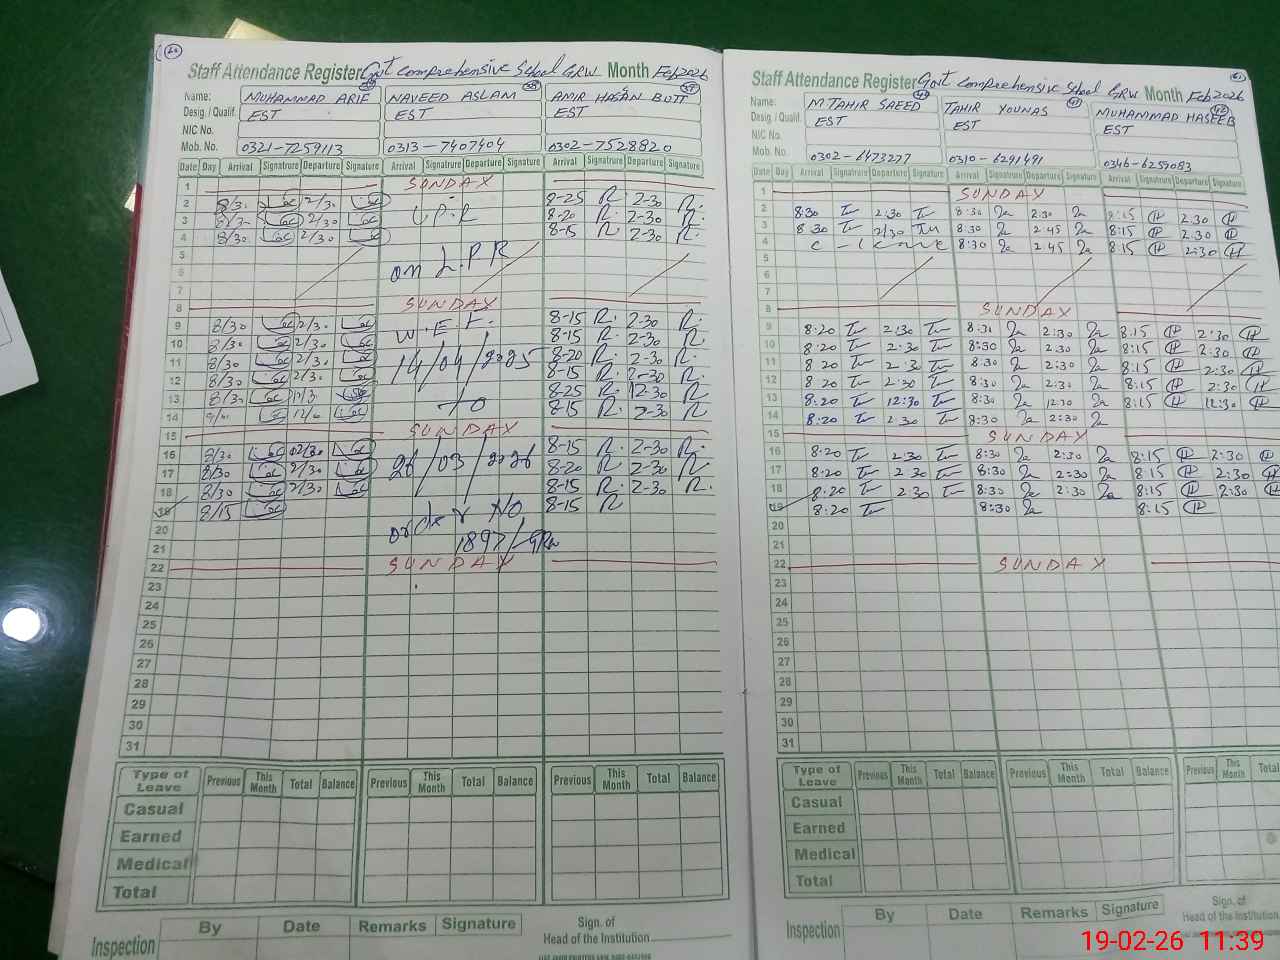 60
Staff Attendance Register Govt Comprehensive School GRW Month Feb 2026
Name: MUHAMMAD ARIF NAVEED ASLAM 38 AMIR HASAN BUTT 39
Desig. / Qualif. EST EST EST
NIC No.
Mob. No. 0321-7259113 0313-7407404 0302-7528820
Date Day Arrival Signatrure Departure Signature Arrival Signatrure Departure Signature Arrival Signatrure Departure Signature
1 SUNDAY
2 8/30 2/30 L.P.R 8-25 R 2-30 R.
3 8/30 2/30 8-20 R. 2-30 R.
4 8/30 2/30 8-15 R 2-30 R.
5 on L.P.R
6
7
8 SUNDAY
9 8/30 2/30 W.E.F. 8-15 R. 2-30 R.
10 8/30 2/30 8-15 R. 2-30 R.
11 8/30 2/30 14/04/2025 8-20 R. 2-30 R.
12 8/30 2/30 8-15 R. 2-30 R.
13 8/30 To 8-25 R. 12-30 R.
14 8-15 R. 2-30 R
15 SUNDAY
16 8/30 2/30 26/03/2026 8-15 R. 2-30 R.
17 8/30 2/30 8-20 R 2-30 R.
18 8/30 2/30 8-15 R. 2-30 R.
19 8/15 order No 8-15 R
20 1897/
21
22 SUNDAY
23
24
25
26
27
28
29
30
31
Type of Leave Previous This Month Total Balance Previous This Month Total Balance Previous This Month Total Balance
Casual
Earned
Medical
Total
Inspection By Date Remarks Signature Sign. of
Head of the Institution
61
Staff Attendance Register Govt Comprehensive School GRW Month Feb 2026
Name: M TAHIR SAEED 40 TAHIR YOUNAS 41 MUHAMMAD HASEEB 42
Desig. / Qualif. EST EST EST
NIC No.
Mob. No. 0302-6473277 0310-6291491 0346-6259083
Date Day Arrival Signatrure Departure Signature Arrival Signatrure Departure Signature Arrival Signatrure Departure Signature
1 SUNDAY
2 8:30 2:30 8:30 2:30 8:15 2:30
3 8:30 2/30 8:30 2:45 8:15 2:30
4 c - leave 8:30 2:45 8:15 2:30
5
6
7
8 SUNDAY
9 8:20 2:30 8:30 2:30 8:15 2:30
10 8:20 2:30 8:30 2:30 8:15 2:30
11 8:20 2:30 8:30 2:30 8:15 2:30
12 8:20 2:30 8:30 2:30 8:15 2:30
13 8:20 12:30 8:30 12:30 8:15 12:30
14 8:20 2:30 8:30 2:30
15 SUNDAY
16 8:20 2:30 8:30 2:30 8:15 2:30
17 8:20 2:30 8:30 2:30 8:15 2:30
18 8:20 2:30 8:30 2:30 8:15 2:30
19 8:20 8:30 8:15
20
21
22 SUNDAY
23
24
25
26
27
28
29
30
31
Type of Leave Previous This Month Total Balance Previous This Month Total Balance Previous This Month Total
Casual
Earned
Medical
Total
Inspection By Date Remarks Signature Sign. of
Head of the Institution
19-02-26 11:39